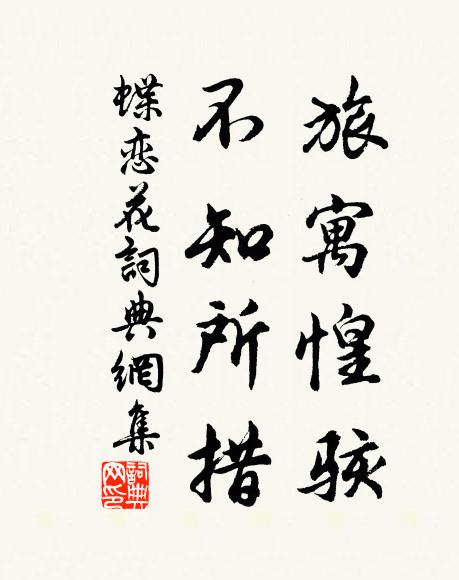 旅寓惶骇
不知所措
蝶恋花詞典網集
詞典网印